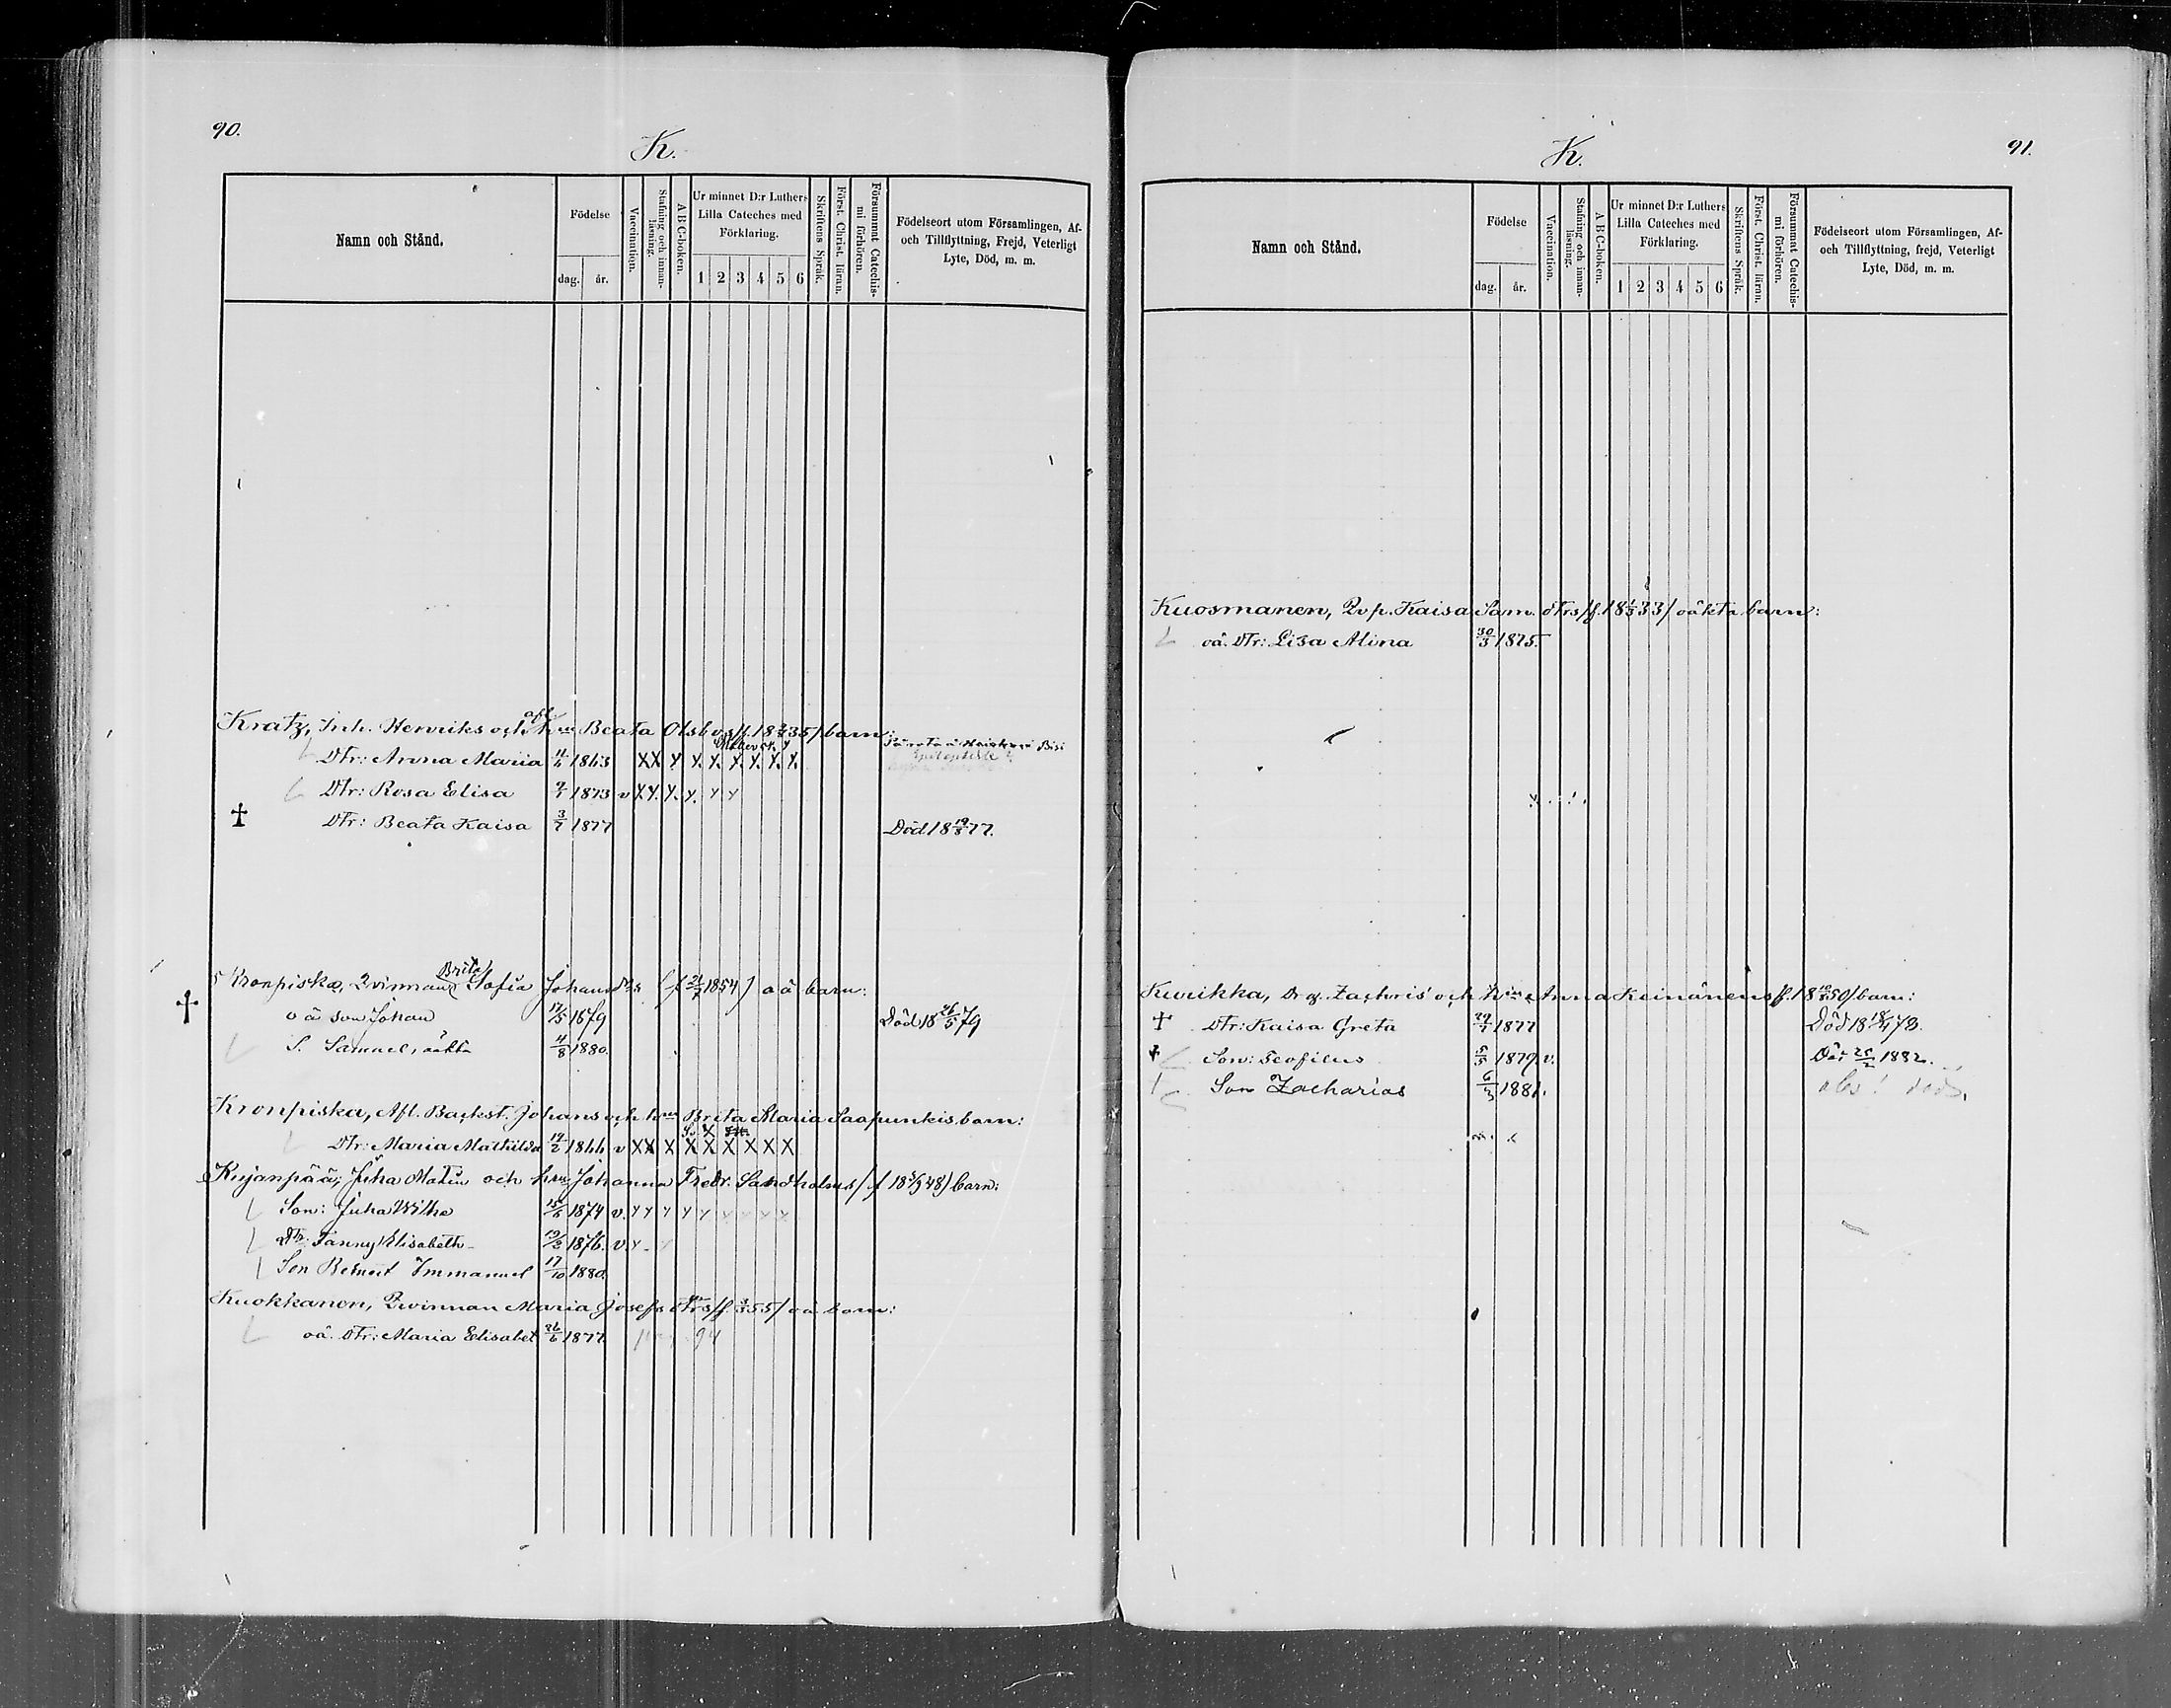 90.
K.
Namn och Stånd.
Födelse
dag.
år.
Vaccination.
Stafning och innan-
läsning.
A B C-boken.
Ur minnet D:r Luthers
Lilla Cateches med
Förklaring.
1 2 3 4 5 6
Skriftens Språk.
Först. Christ. läran.
Försummat Catechis-
mi förhören.
Födelseort utom Församlingen, Af-
och Tillflyttning, Frejd, Veterligt
Lyte, Död, m. m.
Kratz, Inh. Henriks och h:us Beata Olsbos /f. 18 35/ barn:
Dtr: Anna Maria 11/6 1863 X X Y Y. Y. Y. Y. Y. Y.
Dtr: Rosa Elisa 9/1 1873 v X Y. Y. Y. Y Y
† Dtr: Beata Kaisa 3/7 1877 Död 18 19/8 77.
Brita
Kronpiska, Qvinnans Sofia Johansdrs (f 21/7 1854) oä barn:
† oä son Johan 17/5 1879 Död 18 26/5 79
S. Samuel, oäkta 4/8 1880.
Kronpiska, Afl. Backst. Johans och h:us Brita Maria Saapunkis barn:
Dtr: Maria Mathilda 14/2 1866 v X X X X X X X X X
Kujanpää, Juha Matin och hru Johanna Fredr. Sandholms /f 18 5/9 48) barn:
Son: Juha Wilhe 15/6 1874 v. Y Y Y Y Y Y Y Y Y
Dtr: Fanny Elisabeth 19/2 1876. v. Y
Son Bernert Immanuel 17/10 1880.
Kuokkanen, Qvinnan Maria Josefs dtrs /f. 55/ oä barn:
oä. Dtr: Maria Elisabet 26/6 1877. 94
91.
K.
Namn och Stånd.
Födelse
dag.
år.
Vaccination.
Stafning och innan-
läsning.
A B C-boken.
Ur minnet D:r Luthers
Lilla Cateches med
Förklaring.
1 2 3 4 5 6
Skriftens Språk.
Först. Christ. läran.
Försummata Catechis-
mi förhören.
Födelseort utom Församlingen, Af-
och Tillflyttning, frejd, Veterligt
Lyte, Död, m. m.
Kuosmanen, Qvp. Kaisa Sam. dtrs /f. 18 1/3 33/ oäkta barn:
oä. Dtr: Lisa Alina 30/3 1875.
Kurikka, Dr g. Zachris' och h:us Anna Keinänens /f. 18 50/ barn:
† Dtr: Kaisa Greta 1877 Död 18 18/4 78.
† Son: Teofilus 5/5 1879. v. Död 25/2 1882.
Son Zacharias 6/3 1881. obs! död.